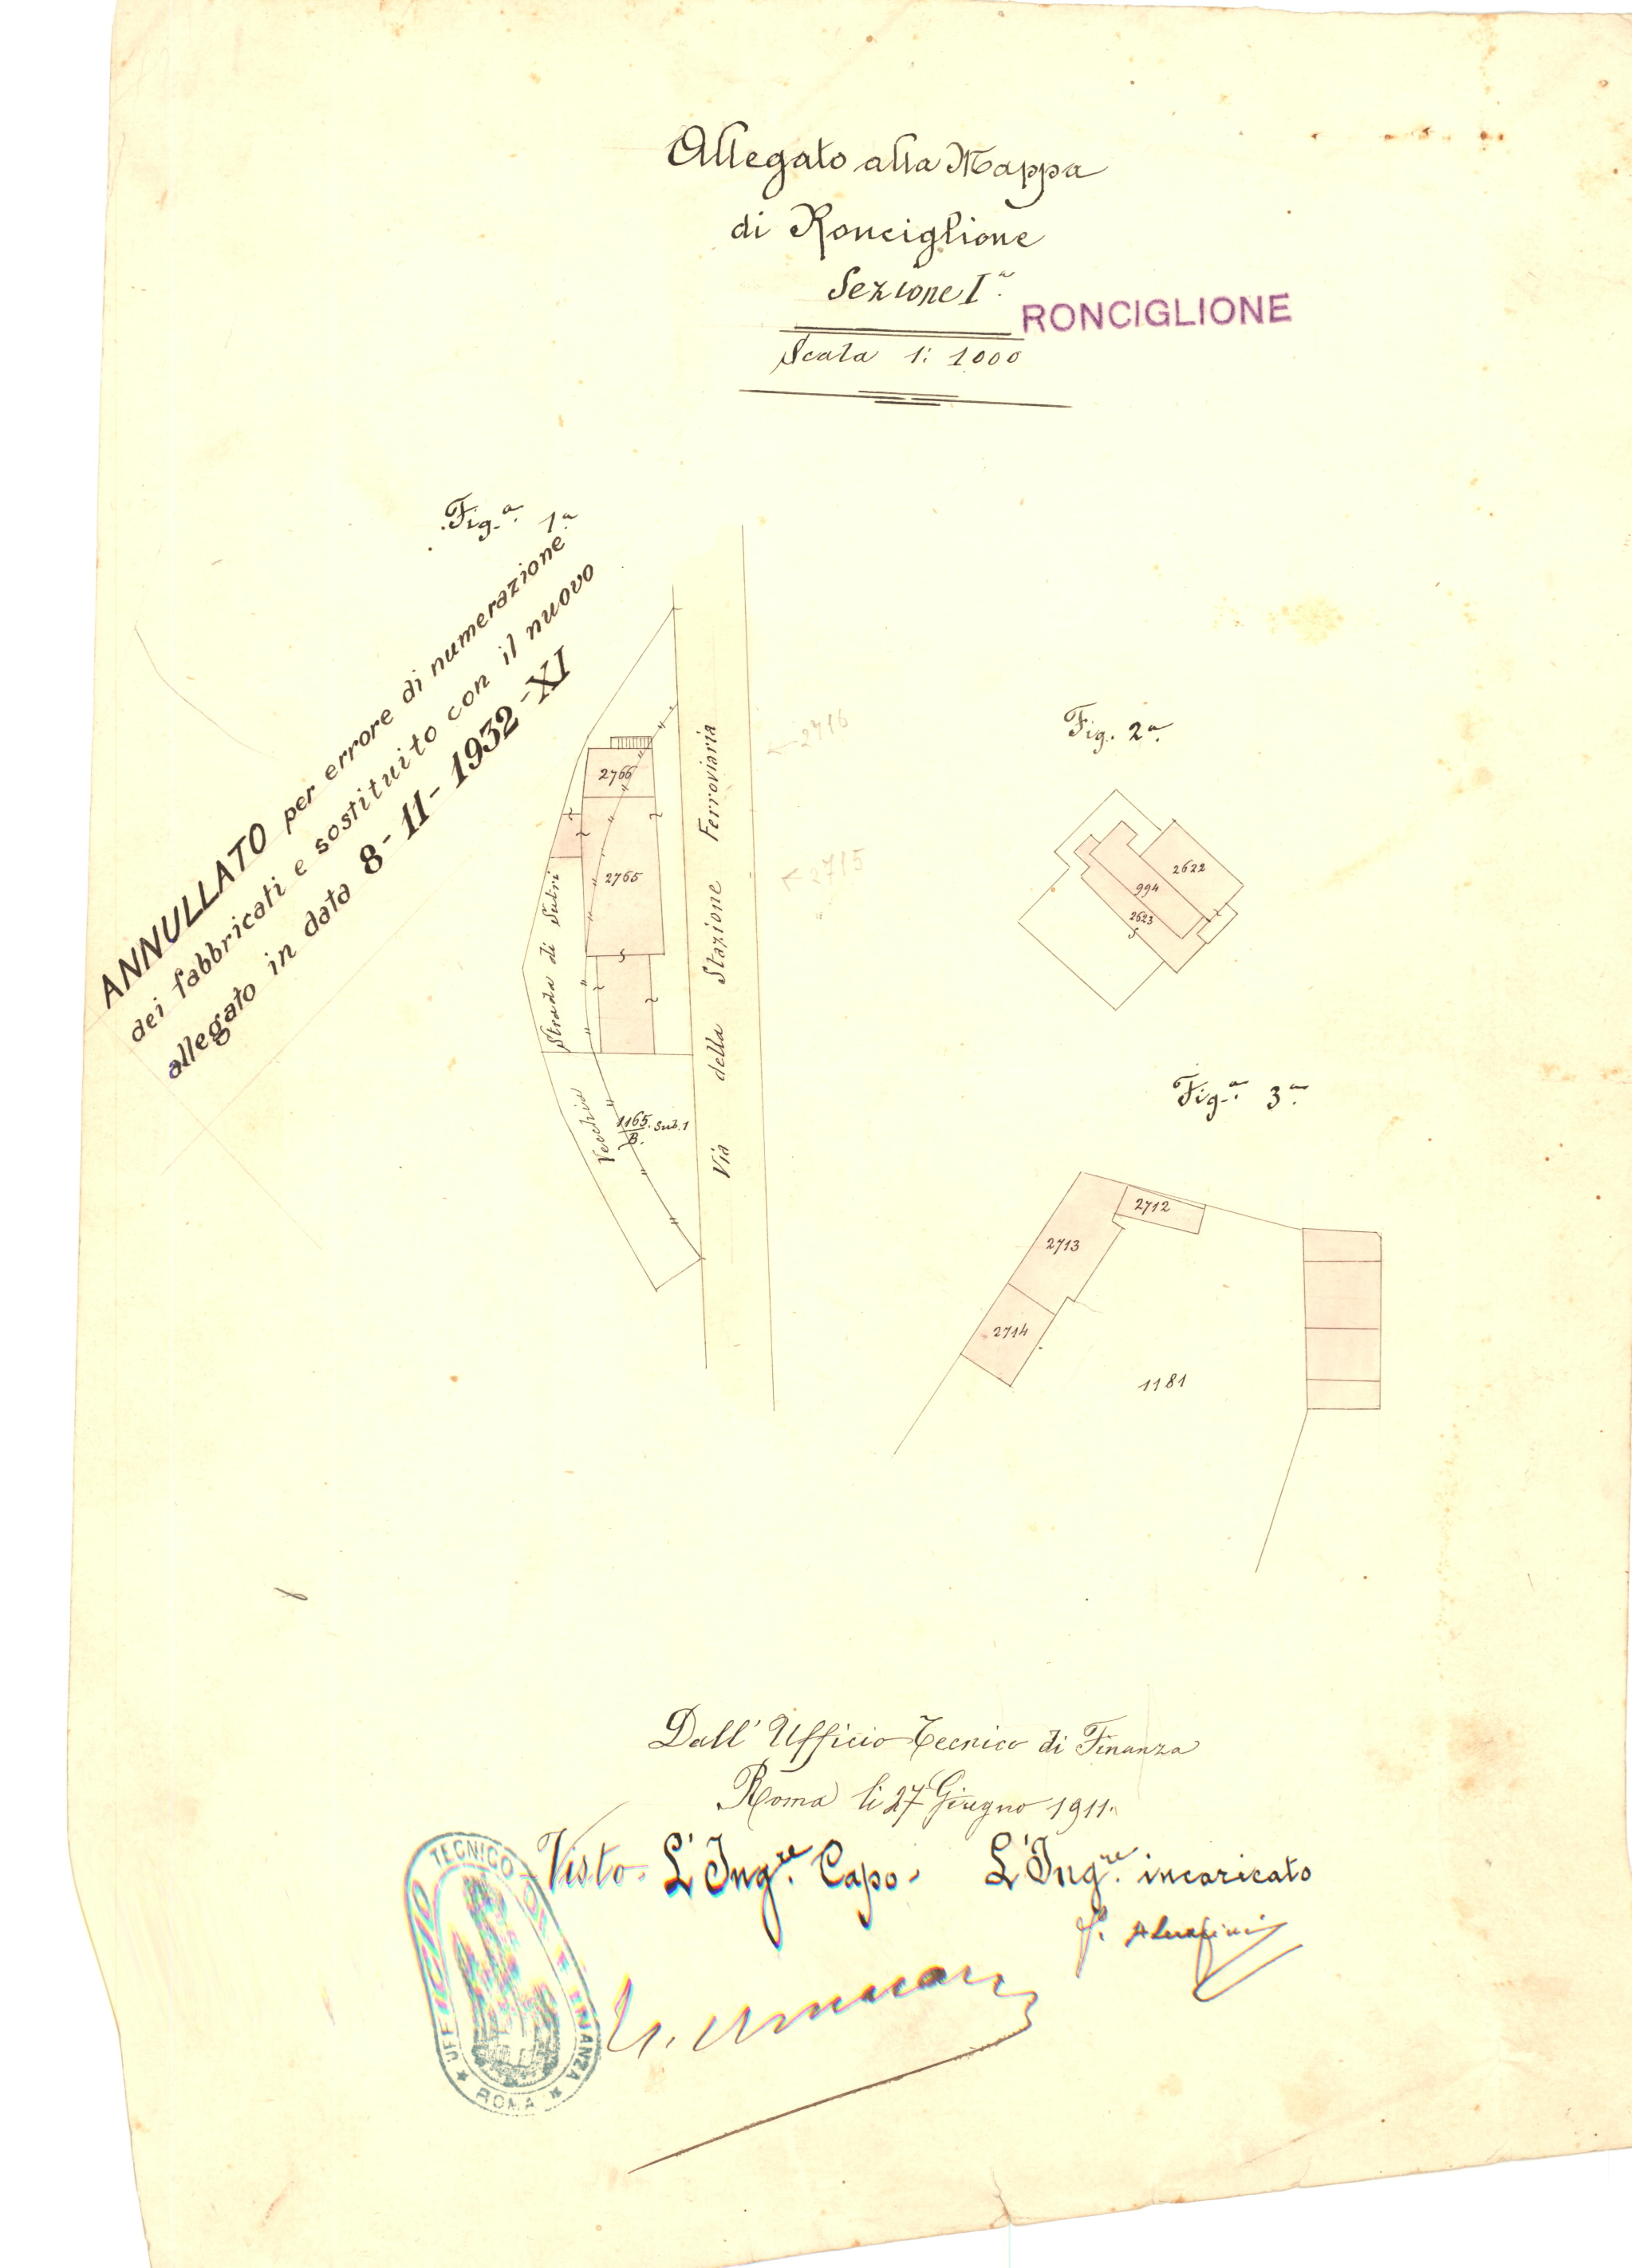 Allegato alla Mappa
di Ronciglione
Sezione Iª.
RONCIGLIONE
Scala 1:1000
Fig.ª 1ª
ANNULLATO per errore di numerazione
dei fabbricati e sostituito con il nuovo
allegato in data 8-11-1932-XI
2766
2765
Strada di Sutri
Vecchia
1165 Sub.1
B.
Via della Stazione Ferroviaria
←2716
←2715
Fig. 2ª.
2622
994
2623
Fig.ª 3ª.
2712
2713
2714
1181
Dall'Ufficio Tecnico di Finanza
Roma li 27 Giugno 1911.
Visto. L'Ing.re Capo. L'Ing.re incaricato
UFFICIO TECNICO DI FINANZA
ROMA